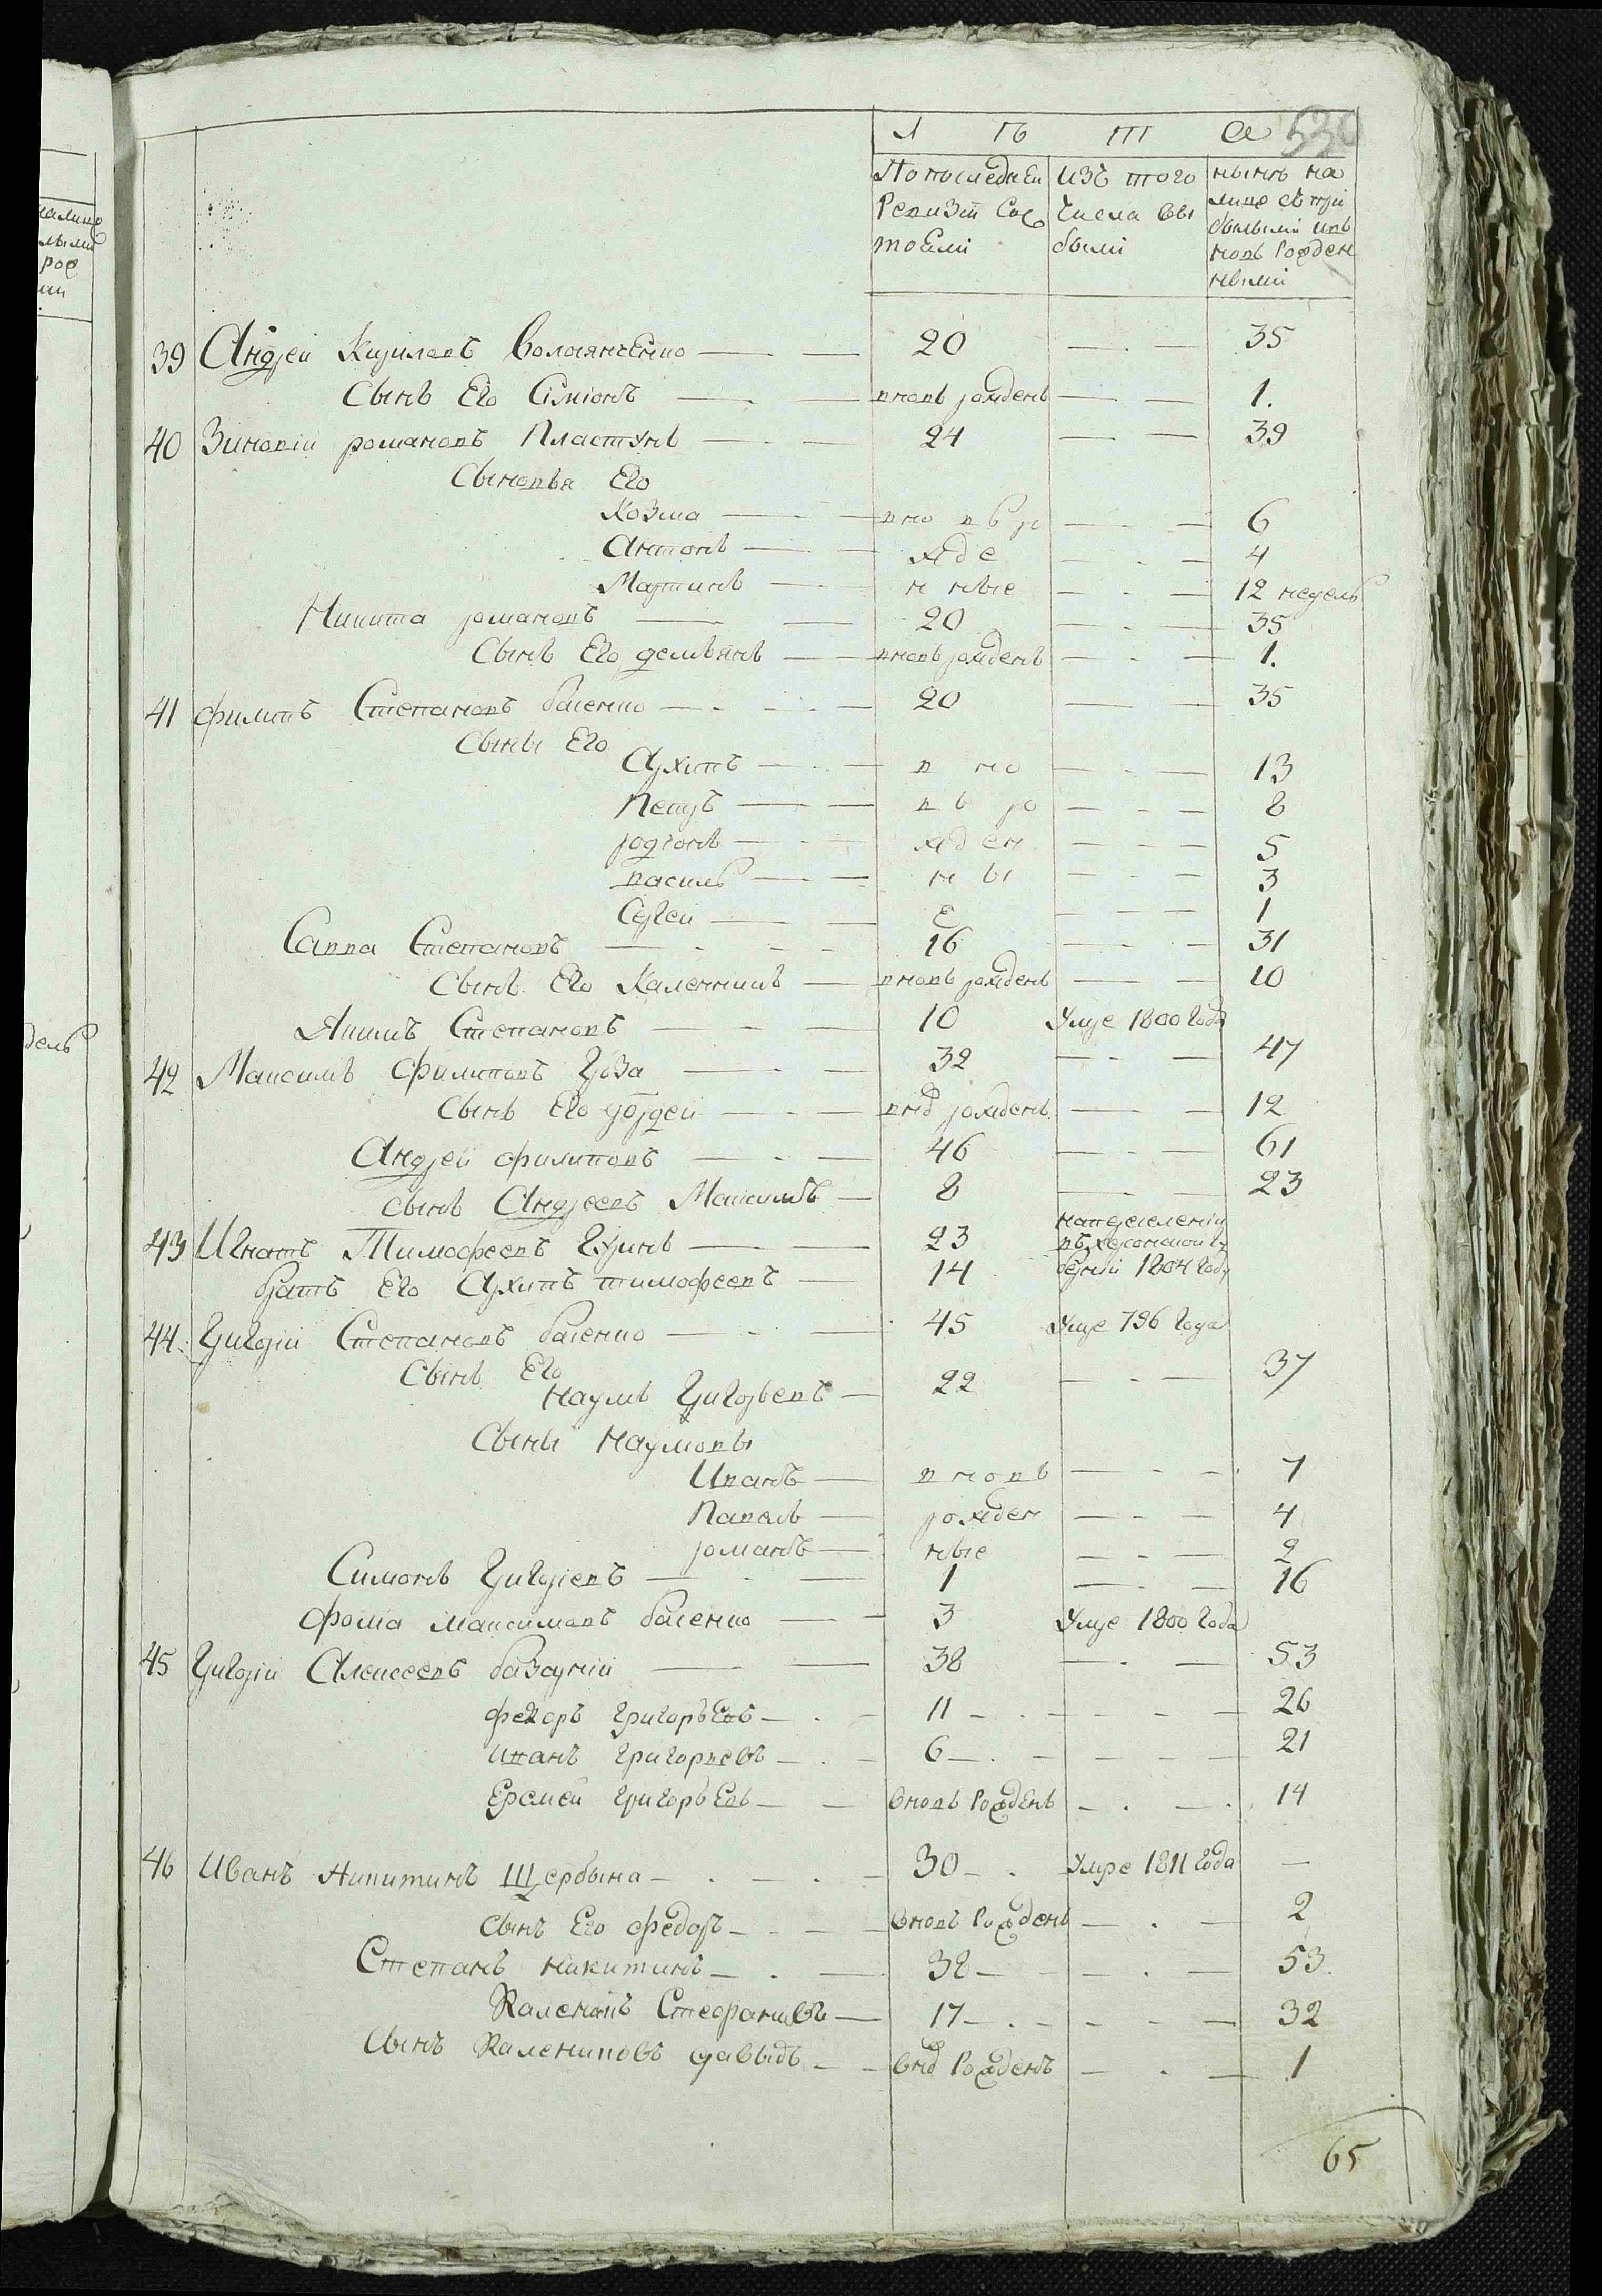 Л ѣ т а 530
По последней Ревизiи Состояли
Изъ того Числа Выбыли
нынѣ на лицо съ прибылыми ивновь Рожденными
39 Андрей Кириловъ Сынъ Его Симiонъ
20 — 35
внов рожденъ — 1.
40 Зиновiй романовъ Пластунъ 24 — 39
Сыновья Его
Козма вно въ ро — 6
Антонъ жде — 4
Мартинъ н ные — 12 недель
Никита романовъ 20 — 35
Сынъ Его демьянъ вновь рожденъ — 1.
41 филипъ Степановъ баленко 20 — 35
Сыны Его
Архипъ в но — 13
Петръ въ ро — 8
родіонъ жден — 5
василь н ы — 3
Сергей е — 1
Савва Степановъ 16 — 31
Сынъ Его Каленникъ вновь рожденъ — 10
Якимъ Степановъ 10 Умре 1800 Года
42 Максимъ Филиповъ Гроза 32 — 47
Сынъ Его Гордей вно рожденъ — 12
Андрей филиповъ 46 — 61
сынъ Андреевъ Максимъ 8 — 23
43 Игнатъ Тимофеевъ 23 въ херсонской гу
братъ Его Архипъ тимофеевъ 14 бернiи 1804 Году
44. Григорiй Степановъ баленко 45 Умре 796 Года
Сынъ Его
Наумъ Григорьевъ 22 — 37
Сыны Наумовы
Иванъ вновь — 7
Павелъ рожден — 4
романъ ные — 2
Симонъ Григорiевъ 1 — 16
Фома максимовъ баленко 3 Умре 1800 Года
45 Григорiй Алексеевъ 38 — 53
федоръ григорьевъ 11 — 26
иванъ григорьевъ 6 — 21
Еремей григорьевъ вновь Рожденъ — 14
46 Иванъ Никитинъ Щербына 30 Умре 1811 Года —
сынъ Его федоръ вновь Рожденъ — 2
Степанъ никитинъ 38 — 53.
Каленикъ Стефановъ 17 — 32
Сынъ Калениковъ давыдъ вно Рожденъ — 1
65